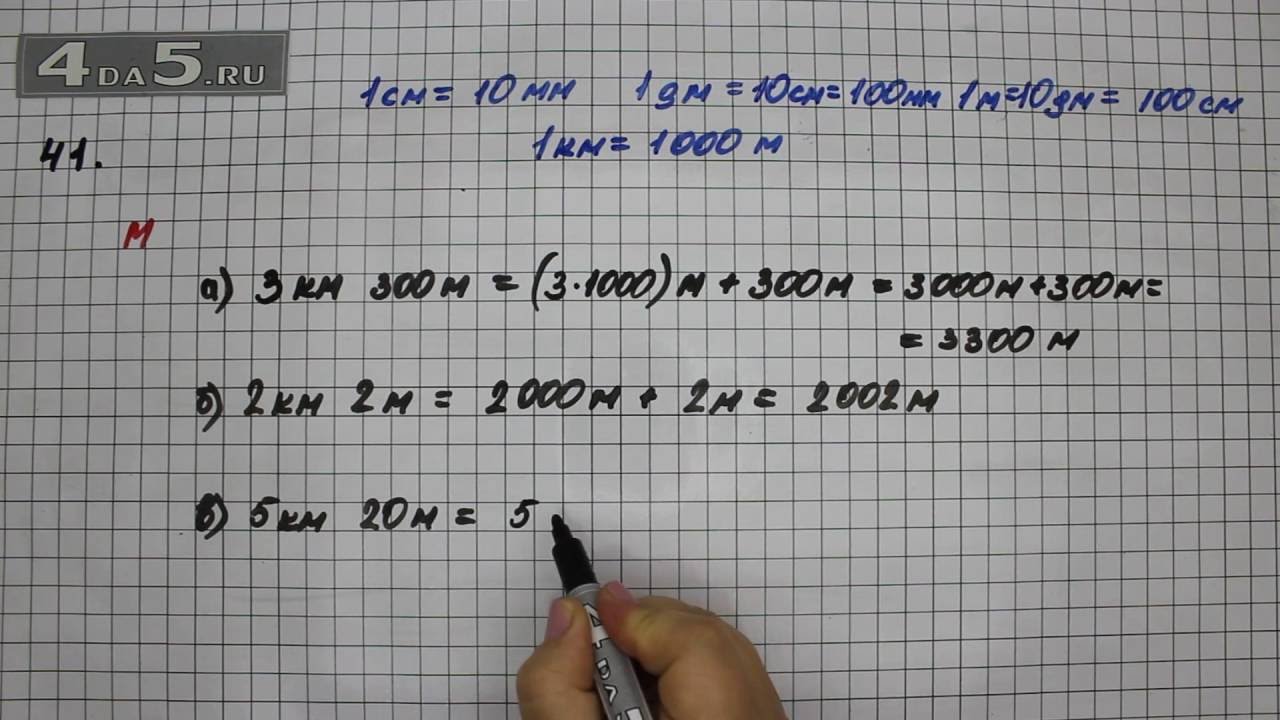 4DA5.RU
1см = 10мм 1дм = 10см = 100мм 1м = 10дм = 100см
1км = 1000 м
41.
м
а) 3 км 300м = (3·1000)м + 300м = 3000м + 300м =
= 3300 м
б) 2км 2м = 2000м + 2м = 2002м
в) 5км 20м = 5